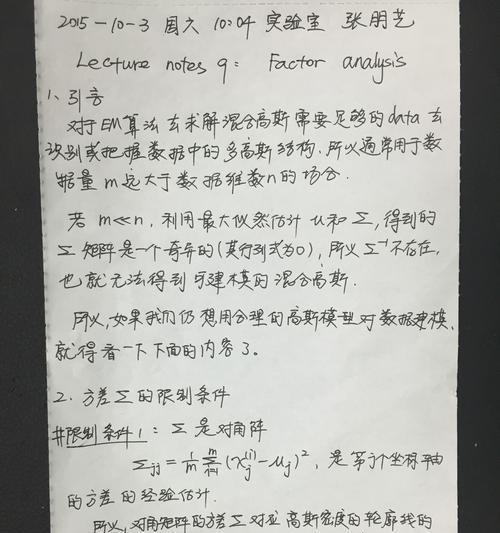 2015-10-3 周六 10:04 实验室 张朋艺
Lecture notes 9: Factor analysis
1、引言
对于EM算法去求解混合高斯需要足够的data去
识别或把握数据中的多高斯结构.所以通常用于数
据量m远大于数据维数n的场合.
若 m≪n, 利用最大似然估计 u和Σ, 得到的
Σ矩阵是一个奇异的(其行列式为0), 所以Σ⁻¹不存在,
也就无法得到可建模的混合高斯.
所以,如果我们仍想用合理的高斯模型对数据建模,
就得看一下下面的内容了。
2. 方差Σ的限制条件
#限制条件1: Σ是对角阵
Σjj = 1/m Σ_{i=1}^{m} (x_j^{(i)} - u_j)², 是第j个坐标轴
的方差的经验估计.
所以,对角矩阵的方差Σ对应高斯密度的轮廓线的